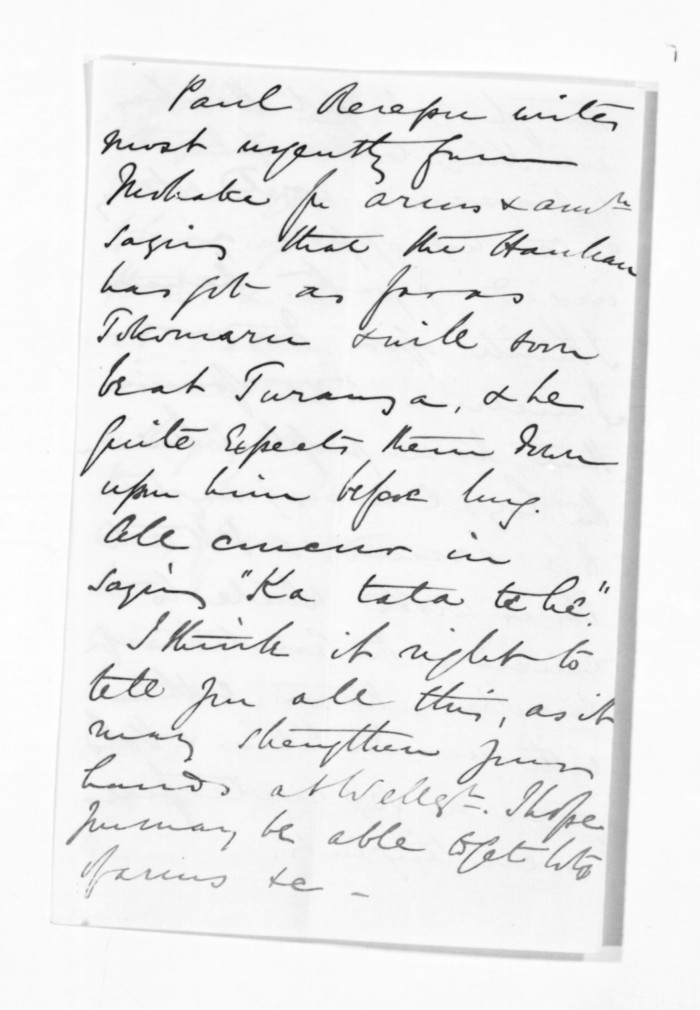 Paul Rerepu writes
most urgently from
Mohaka for arms & amn
saying that the Hauhau
has got as far as
Tokomaru & will soon
be at Turanga, & he
quite Expects them down
upon him before long.
All concur in
saying "Ka tata te hé".
I think it right to
tell you all this, as it
may strengthen your
hands at Wellgtn. I hope
you may be able to get lots
of arms &c —